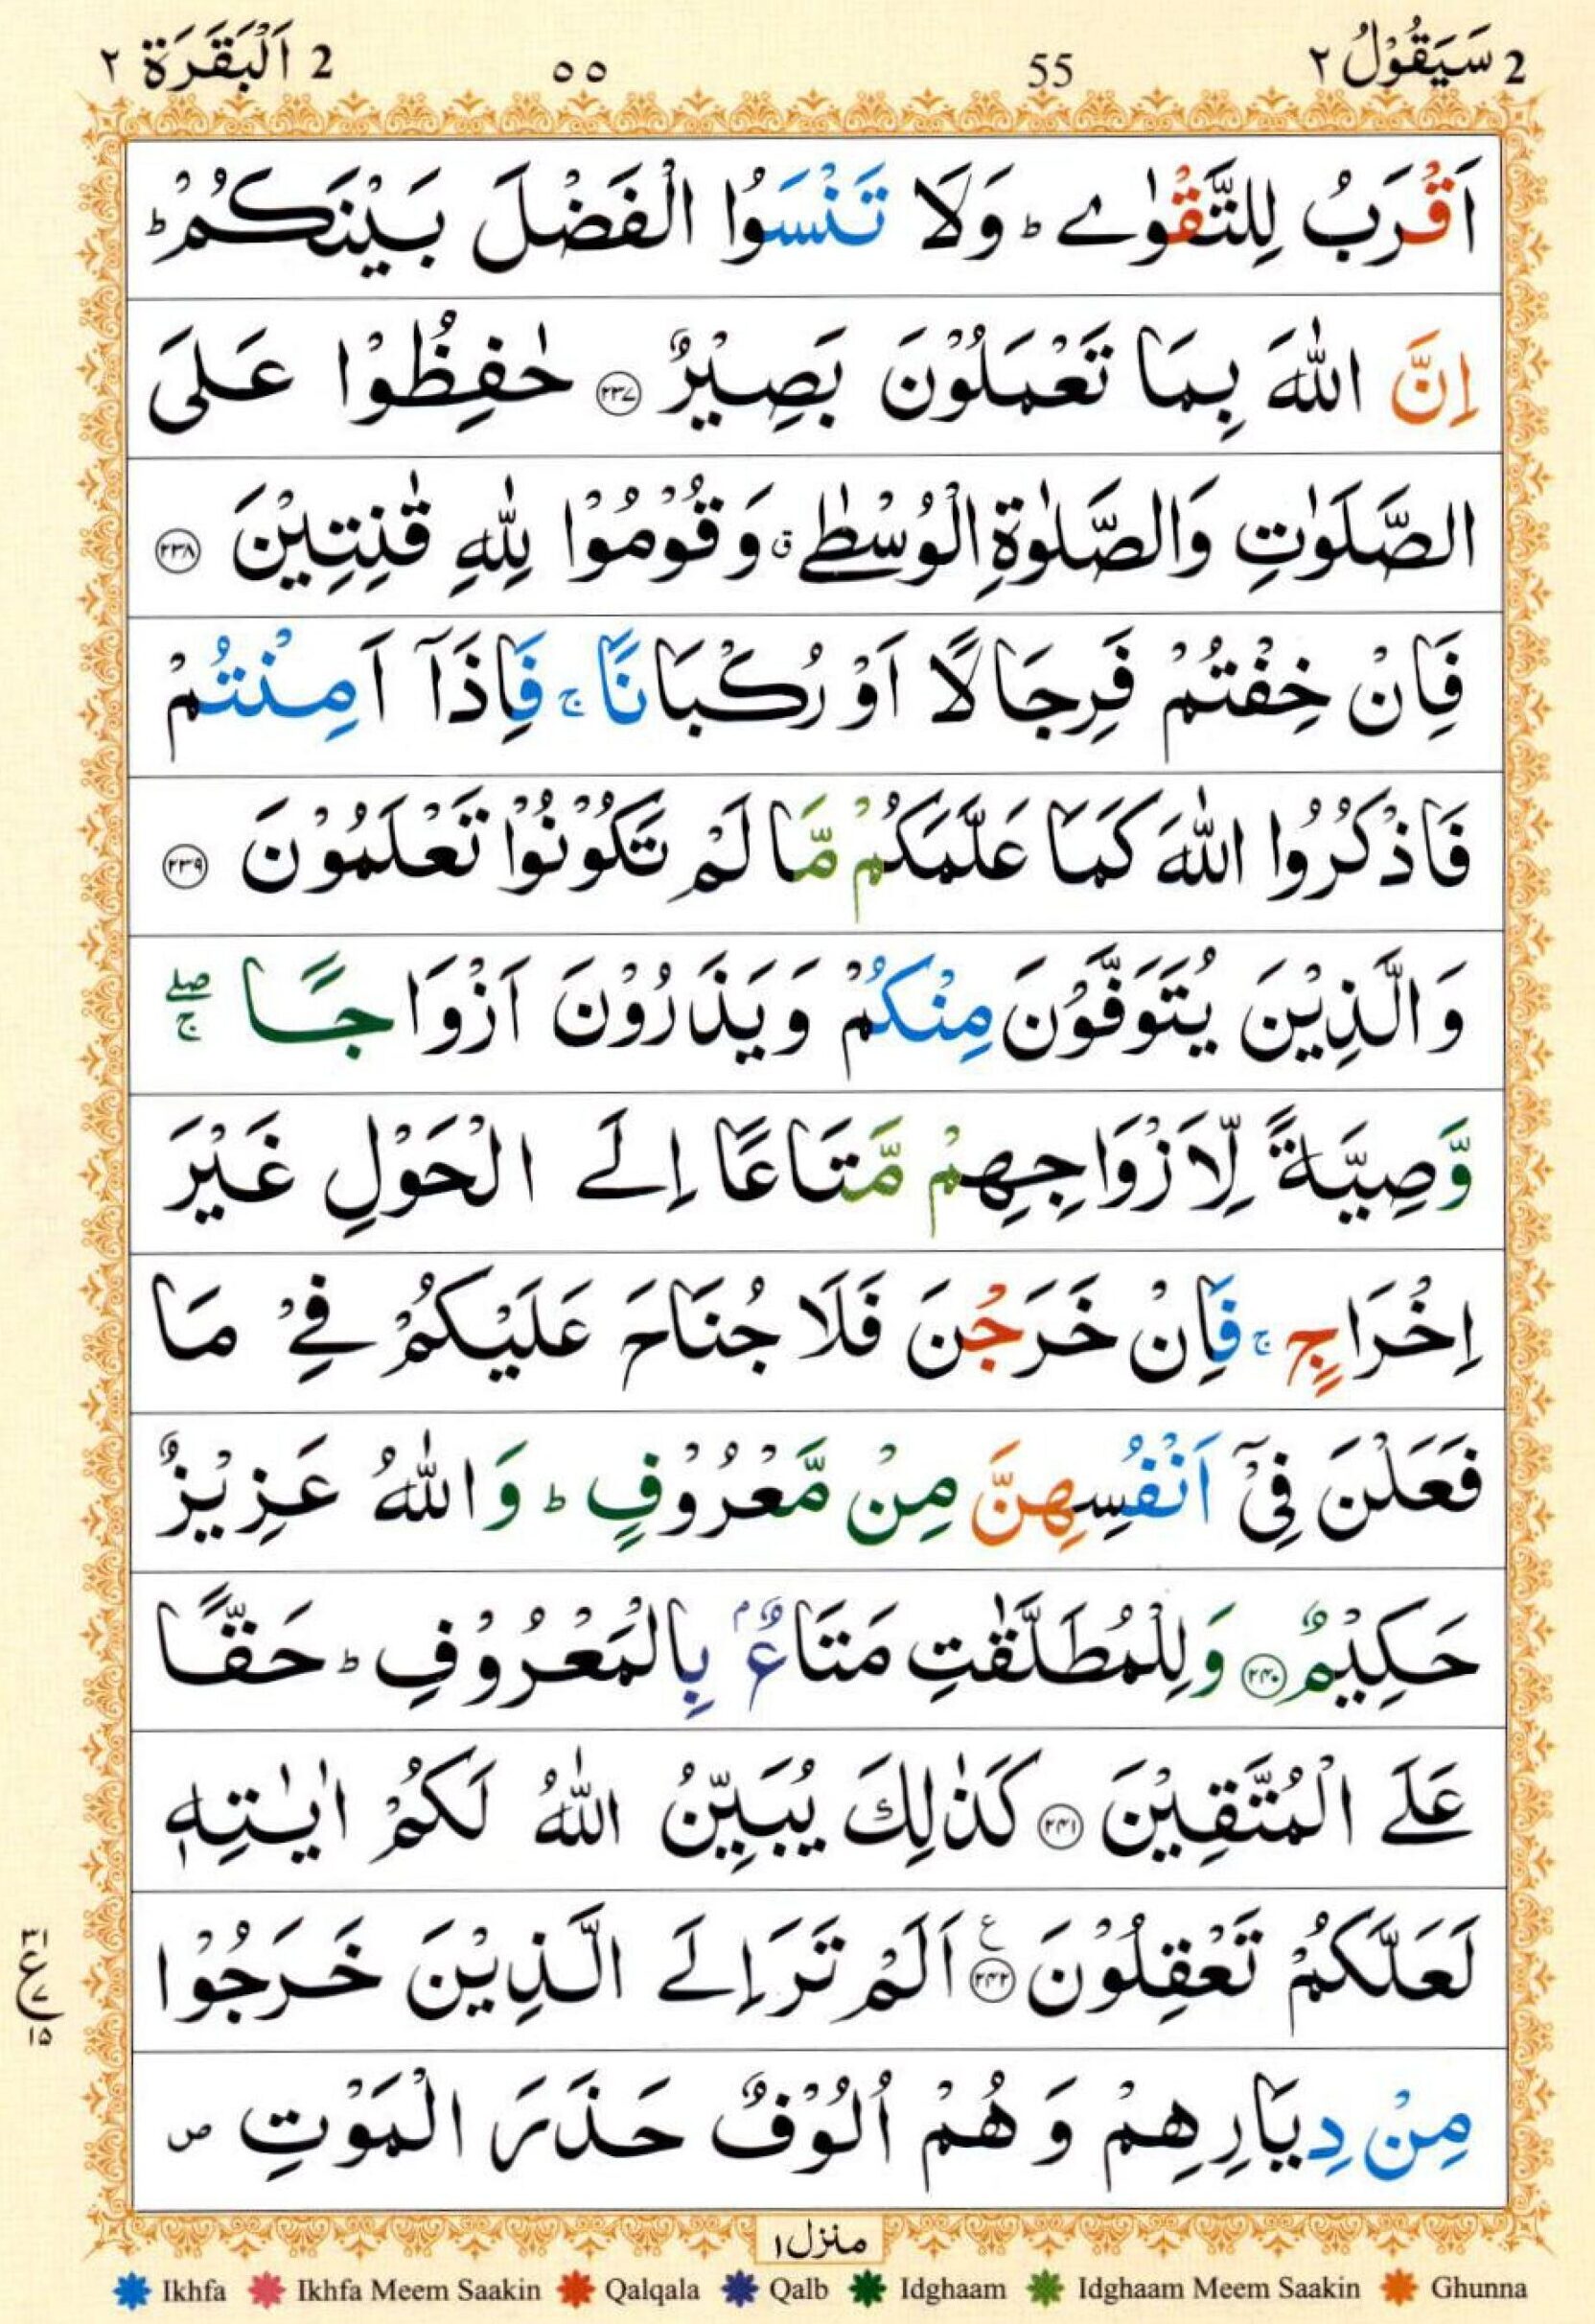 2 سَيَقُوْلُ ٢ 55 ٥٥ 2 اَلْبَقَرَة ٢
اَقْرَبُ لِلتَّقْوٰے ؕ وَلَا تَنْسَوُا الْفَضْلَ بَيْنَكُمْ ؕ
اِنَّ اللّٰهَ بِمَا تَعْمَلُوْنَ بَصِيْرٌ ﴿۲۳۷﴾ حٰفِظُوْا عَلَى
الصَّلَوٰتِ وَالصَّلٰوةِ الْوُسْطٰے ۚق وَقُوْمُوْا لِلّٰهِ قٰنِتِيْنَ ﴿۲۳۸﴾
فَاِنْ خِفْتُمْ فَرِجَالًا اَوْ رُكْبَانًا ۚ فَاِذَآ اَمِنْتُمْ
فَاذْكُرُوا اللّٰهَ كَمَا عَلَّمَكُمْ مَّا لَمْ تَكُوْنُوْا تَعْلَمُوْنَ ﴿۲۳۹﴾
وَالَّذِيْنَ يُتَوَفَّوْنَ مِنْكُمْ وَيَذَرُوْنَ اَزْوَاجًا ۖۚ
وَّصِيَّةً لِّاَزْوَاجِهِمْ مَّتَاعًا اِلَے الْحَوْلِ غَيْرَ
اِخْرَاجٍ ۚ فَاِنْ خَرَجْنَ فَلَا جُنَاحَ عَلَيْكُمْ فِےْ مَا
فَعَلْنَ فِیْٓ اَنْفُسِهِنَّ مِنْ مَّعْرُوْفٍ ؕ وَاللّٰهُ عَزِيْزٌ
حَكِيْمٌ ﴿۲۴۰﴾ وَلِلْمُطَلَّقٰتِ مَتَاعٌۢ بِالْمَعْرُوْفِ ؕ حَقًّا
عَلَے الْمُتَّقِيْنَ ﴿۲۴۱﴾ كَذٰلِكَ يُبَيِّنُ اللّٰهُ لَكُمْ اٰيٰتِهٖ
لَعَلَّكُمْ تَعْقِلُوْنَ ﴿۲۴۲﴾ ع اَلَمْ تَرَ اِلَے الَّذِيْنَ خَرَجُوْا
٣١ ع ٧ ١٥
مِنْ دِيَارِهِمْ وَهُمْ اُلُوْفٌ حَذَرَ الْمَوْتِ ص
منزل ١
Ikhfa Ikhfa Meem Saakin Qalqala Qalb Idghaam Idghaam Meem Saakin Ghunna